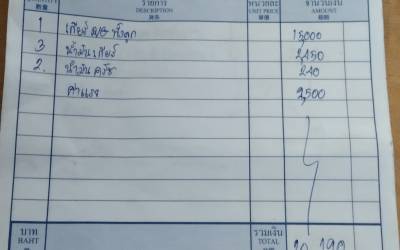 จำนวน QUANTITY 數量 รายการ DESCRIPTION 貨名 หน่วยละ UNIT PRICE 單價 จำนวนเงิน AMOUNT 銀碼
1 เกียร์ ทั้งลูก 15,000
3 น้ำมันเกียร์ 2,450
2. น้ำมันครัช 240
ค่าแรง 2,500
บาท BAHT รวมเงิน TOTAL 190